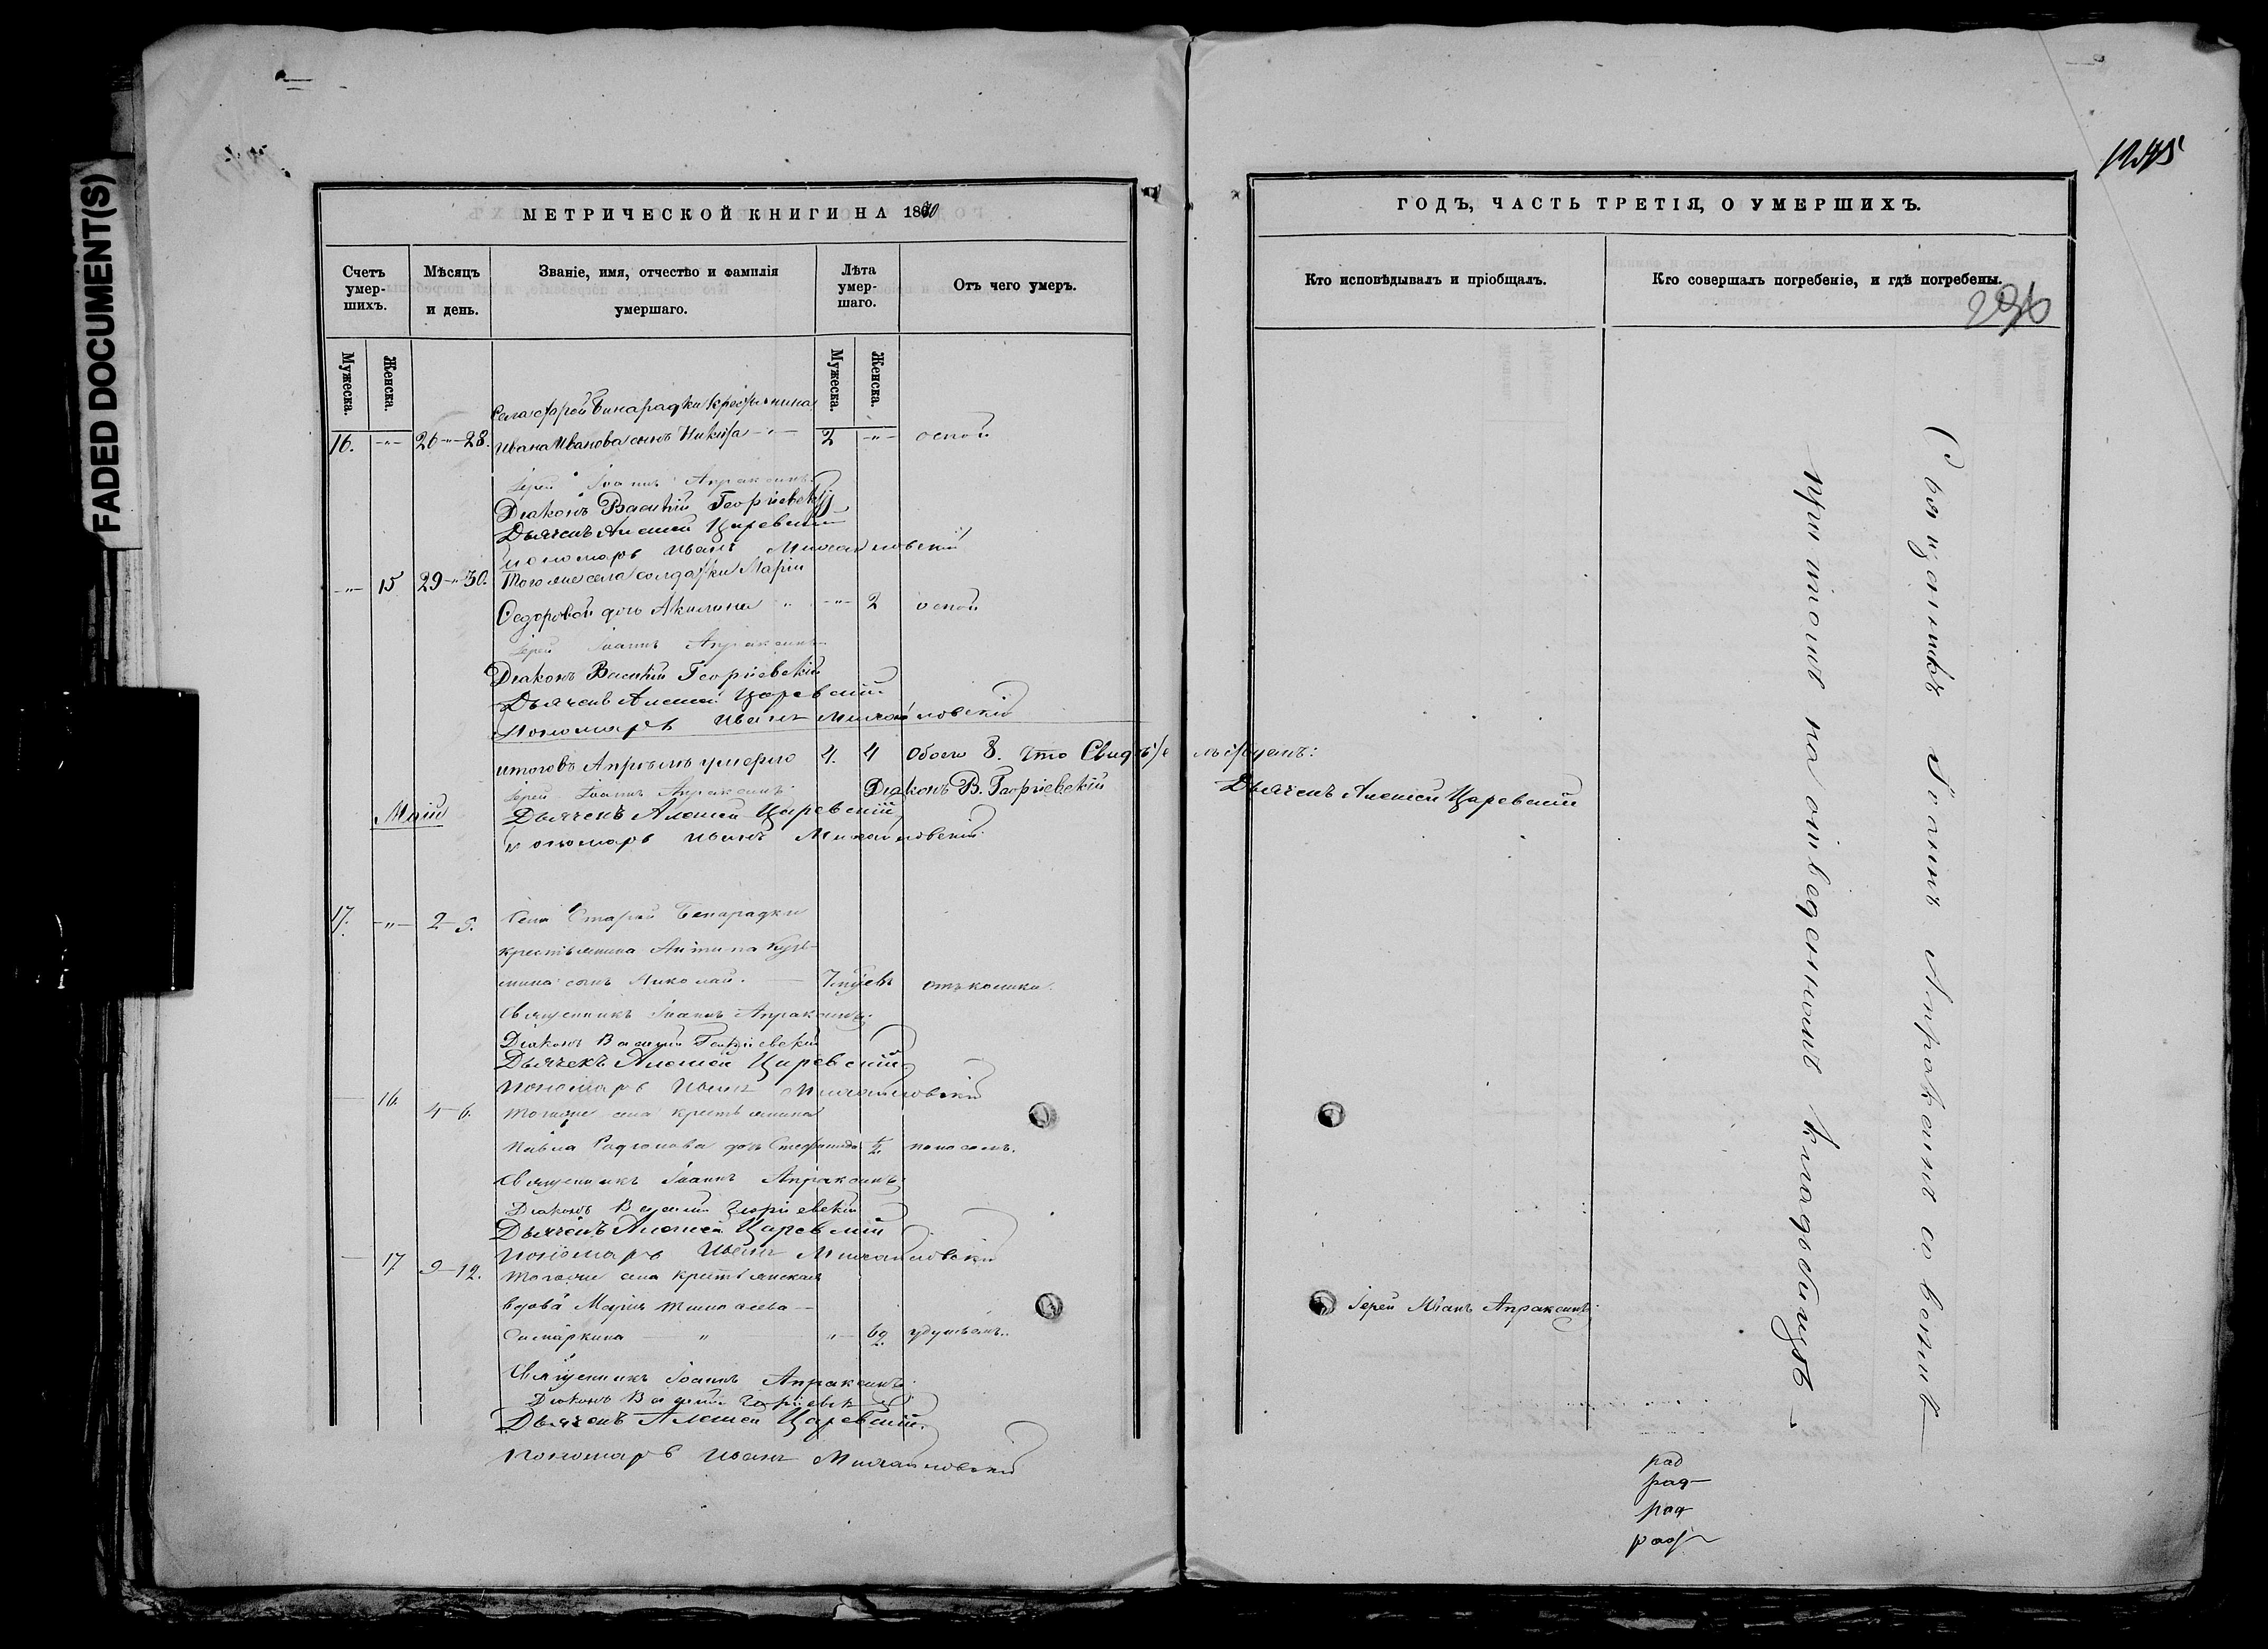 FADED DOCUMENT(S)
МЕТРИЧЕСКОЙ КНИГИ НА 1860
Счетъ умер-шихъ.
Мѣсяцъ и день.
Званіе, имя, отчество и фамилія умершаго.
Лѣта умер-шаго.
Отъ чего умеръ.
Мужеска.
Женска.
Мужеска.
Женска.
Села старой Бинарадки крестьянина
16. -"- 26-"-28. Ивана Иванова сынъ Никита 2 -"- оспой
Іерей Іоаннъ Апраксинъ
Діаконъ Василій Георгіевскій
Дьячекъ Алексей Царевскій
Пономарь Иванъ Михайловскій
-"- 15 29-"-30. Того же села солдатки Маріи
Федоровой дочь Акилина " -"- 2 оспой
Іерей Іоаннъ Апраксинъ
Діаконъ Василій Георгіевскій
Дьячекъ Алексей Царевскій
Пономарь Иванъ Михайловскій
итого въ Апрѣлѣ умерло 4. 4 Обоего 8. Что Свидѣте льствуемъ:
Іерей Іоаннъ Апраксинъ Діаконъ В. Георгіевскій
Май Дьячекъ Алексей Царевскій
Пономарь Иванъ Михайловскій
17. -"- 2-5. Села Старой Бинарадки
крестьянина Антипа Кузь-
мина сынъ Николай. 7 отъ колики.
Священникъ Іоаннъ Апраксинъ
Діаконъ Василій Георгіевскій
Дьячекъ Алексей Царевскій
Пономарь Иванъ Михайловскій
16. 4-6. Того же села крестьянина
Павла Родіонова дочь ½ поносомъ.
Священникъ Іоаннъ Апраксинъ
Діаконъ Василій Георгіевскій
Дьячекъ Алексей Царевскій
Пономарь Иванъ Михайловскій
17 9-12. Того же села крестьянская
вдова Марія
" " удушьемъ.
Священникъ Іоаннъ Апраксинъ
Діаконъ Василій Георгіевскій
Дьячекъ Алексей Царевскій
Пономарь Иванъ Михайловскій
ГОДЪ, ЧАСТЬ ТРЕТІЯ, О УМЕРШИХЪ.
Кто исповѣдывалъ и пріобщалъ.
Кто совершалъ погребеніе, и гдѣ погребены.
Дьячекъ Алексей Царевскій
Іерей Іоаннъ Апраксинъ
Священникъ Іоаннъ Апраксинъ со всемъ
причтомъ на отведенномъ кладбищѣ